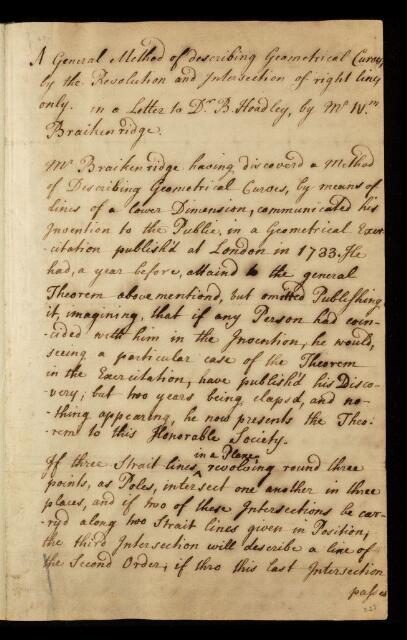 A General Method of describing Geometrical Curves,
by the Revolution and Intersection of right lines
only. in a Letter to Dr. B. Hoadley, by Mr Wm.
Braikenridge.
Mr. Braikenridge having discoverd a Method
of Describing Geometrical Curves, by means of
lines of a lower Dimension, communicated his
Invention to the Public, in a Geometrical Exer-
-citation publish'd at London in 1733. He
had, a year before, attaind to the general
Theorem above mentiond, but omitted Publishing
it, imagining, that if any Person had coin-
-cided with him in the Invention, he would,
seeing a particular case of the Theorem
in the Exercitation, have publish'd his Disco-
-very; but two years being elaps'd, and no-
-thing appearing, he now presents the Theo-
-rem to this Honorable Society.
in a Plane
If three Strait lines, ^ revolving round three
points, as Poles, intersect one another in three
places, and if two of these Intersections be car-
ry'd along two Strait lines given in Position,
the third Intersection will describe a line of
the Second Order; if thro this last Intersection
passes